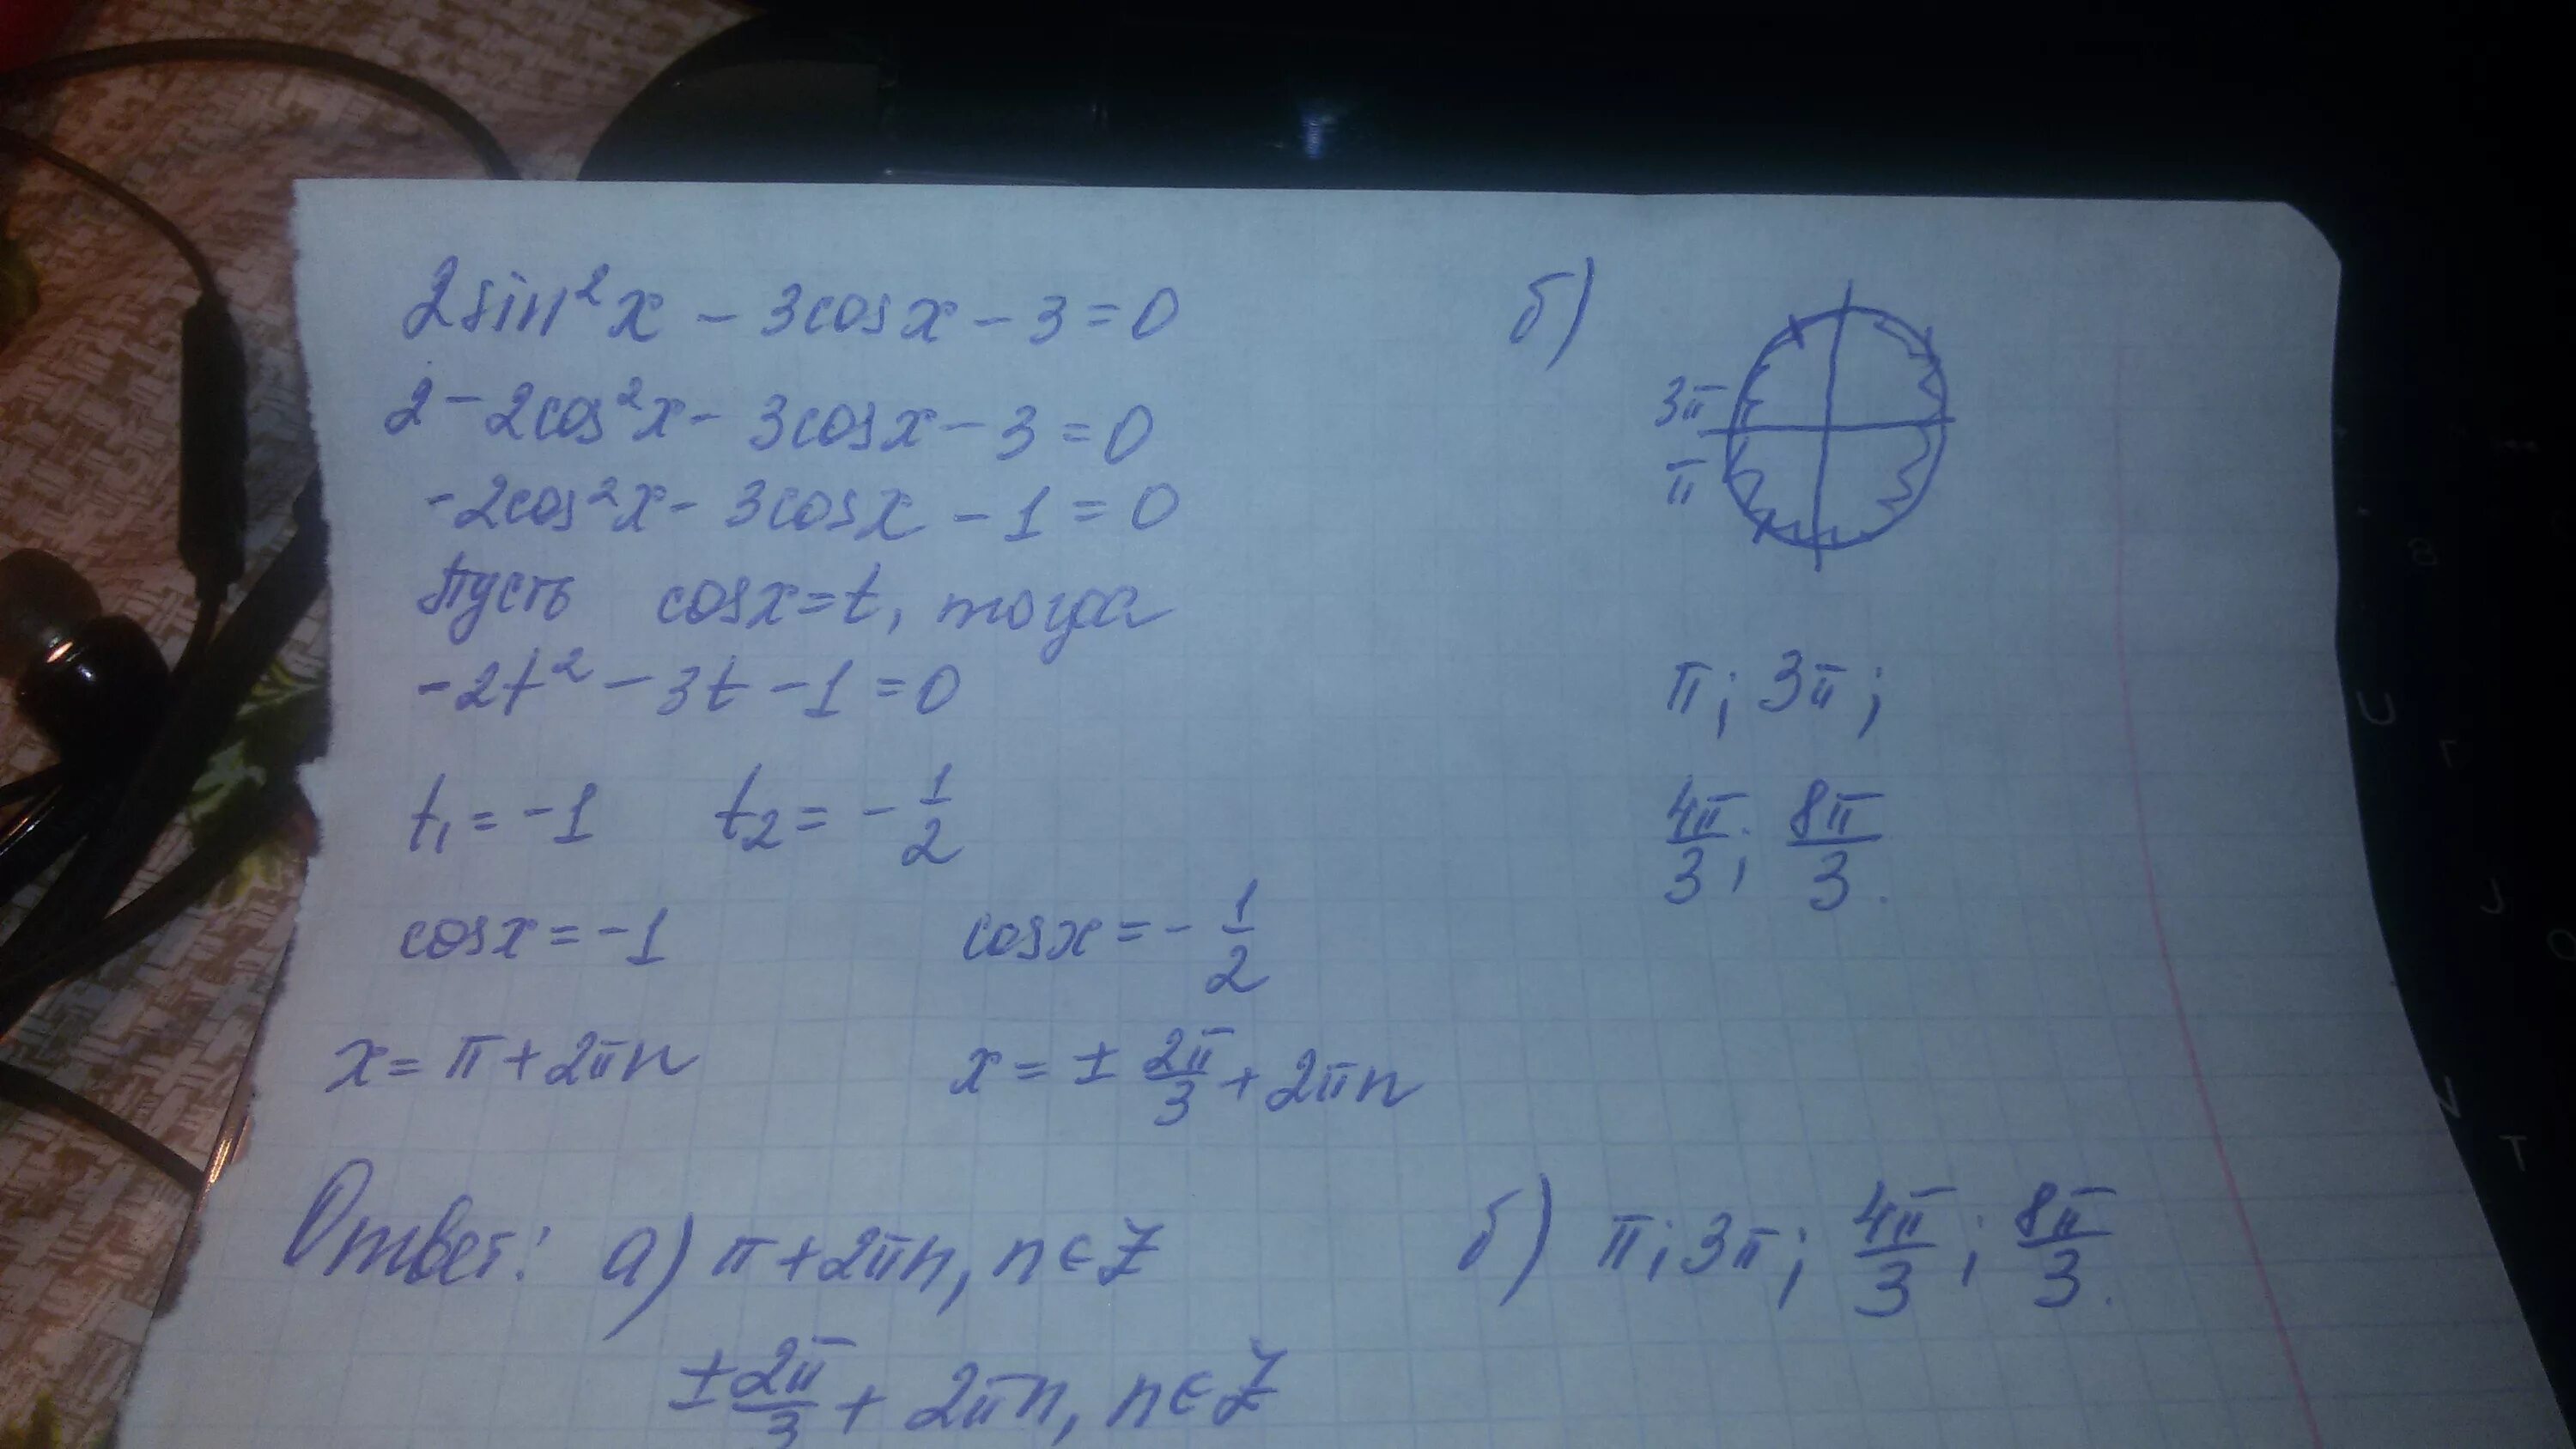 2sin²x - 3cosx - 3 = 0
2 - 2cos²x - 3cosx - 3 = 0
-2cos²x - 3cosx - 1 = 0
Пусть cosx = t, тогда
-2t² - 3t - 1 = 0
t₁ = -1 t₂ = -1/2
cosx = -1 cosx = -1/2
x = π + 2πn x = ± 2π/3 + 2πn
б)
3π
π
π; 3π;
4π/3; 8π/3.
Ответ: а) π + 2πn, n ∈ Z б) π; 3π; 4π/3; 8π/3.
± 2π/3 + 2πn, n ∈ Z